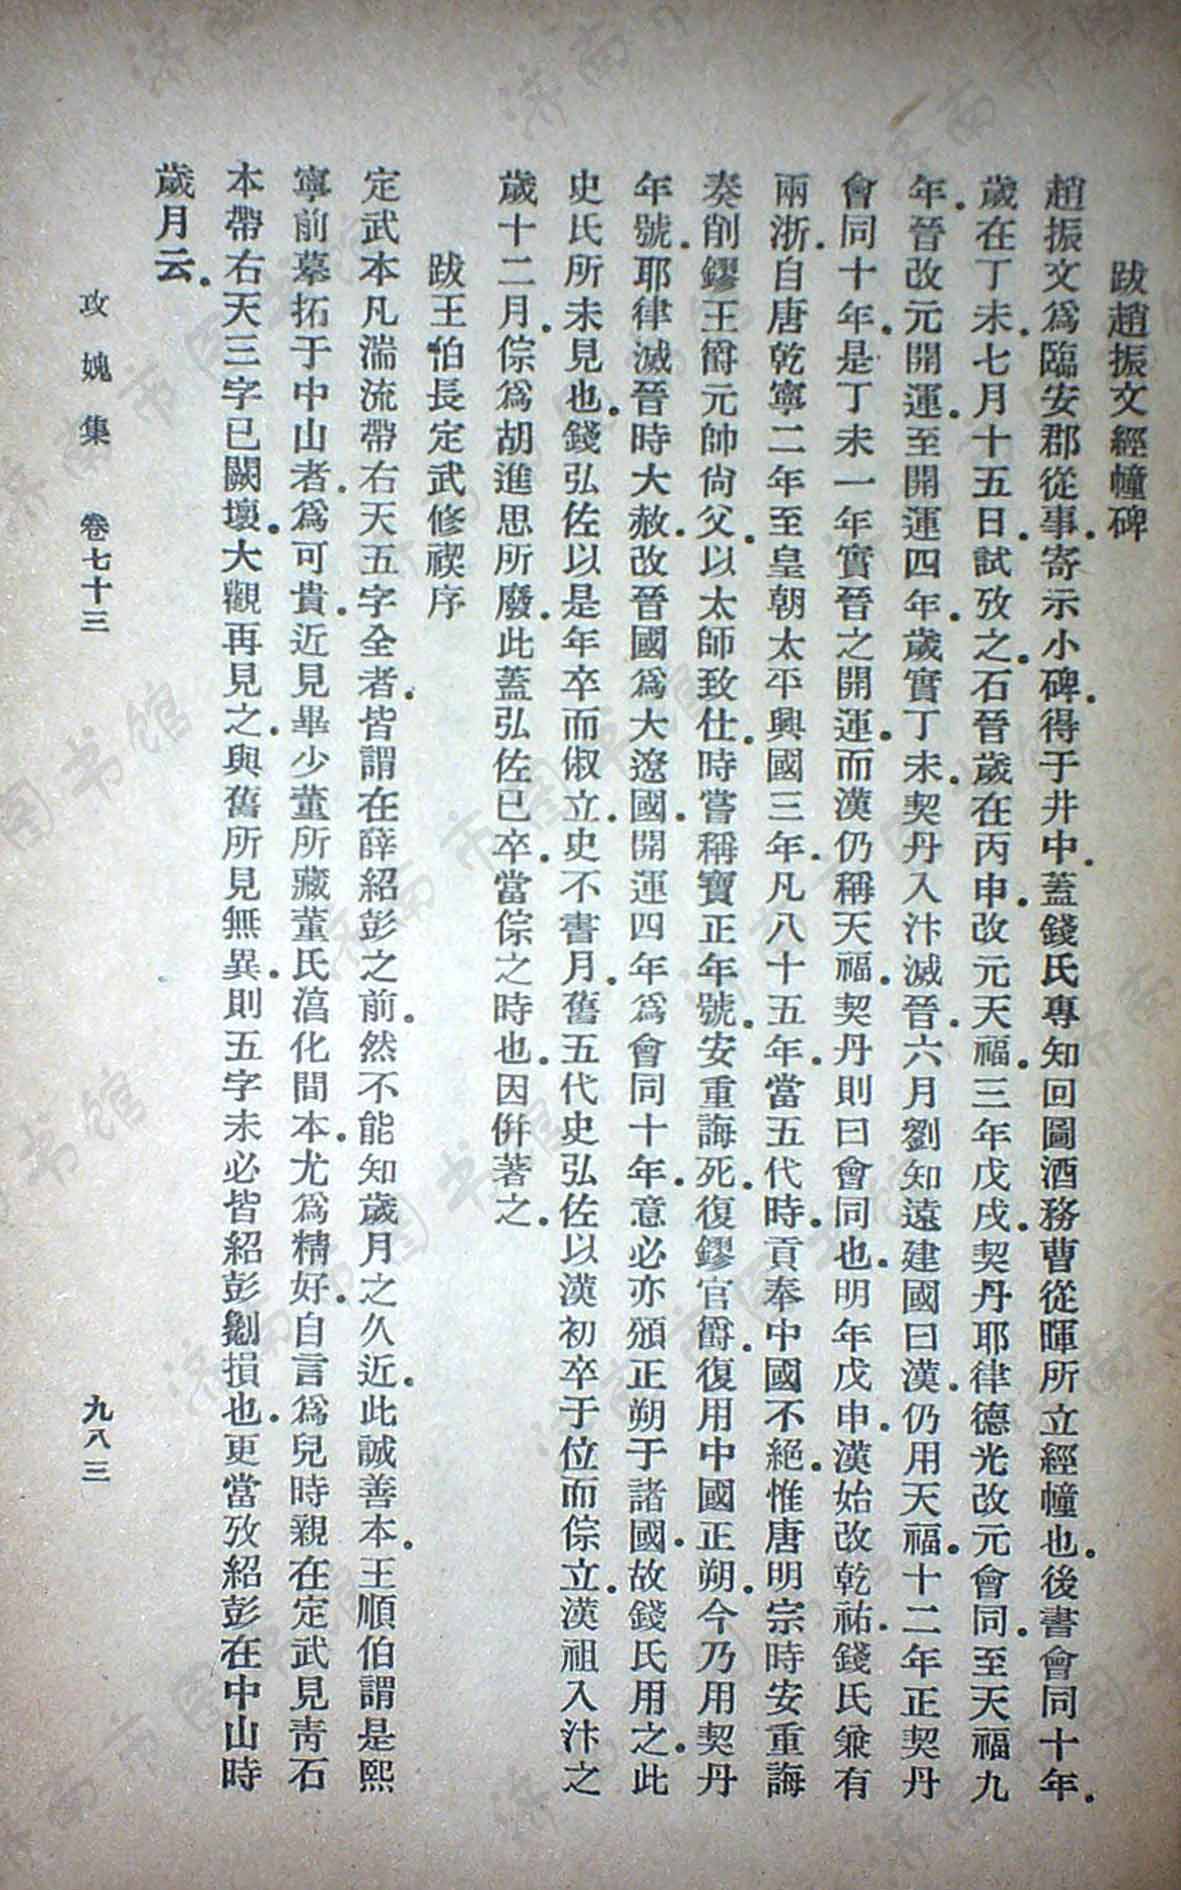 跋趙振文經幢碑
趙振文爲臨安郡從事。寄示小碑。得于井中。蓋錢氏專知回圖酒務曹從暉所立經幢也。後書會同十年。
歲在丁未。七月十五日。試攷之。石晉歲在丙申。改元天福。三年戊戌。契丹耶律德光改元會同。至天福九
年。晉改元開運。至開運四年。歲實丁未。契丹入汴滅晉。六月劉知遠建國曰漢。仍用天福。十二年正契丹
會同十年。是丁未一年實晉之開運。而漢仍稱天福。契丹則曰會同也。明年戊申。漢始改乾祐。錢氏兼有
兩浙。自唐乾寧二年至皇朝太平興國三年。凡八十五年。當五代時。貢奉中國不絕。惟唐明宗時安重誨
奏削鏐王爵元帥尙父。以太師致仕。時嘗稱寶正年號。安重誨死。復鏐官爵。復用中國正朔。今乃用契丹
年號。耶律滅晉時大赦。改晉國爲大遼國。開運四年爲會同十年。意必亦頒正朔于諸國。故錢氏用之。此
史氏所未見也。錢弘佐以是年卒而俶立。史不書月。舊五代史弘佐以漢初卒于位而倧立。漢祖入汴之
歲十二月。倧爲胡進思所廢。此蓋弘佐已卒。當倧之時也。因倂著之。
跋王伯長定武修禊序
定武本凡湍流帶右天五字全者。皆謂在薛紹彭之前。然不能知歲月之久近。此誠善本。王順伯謂是熙
寧前摹拓于中山者。爲可貴。近見畢少董所藏董氏淳化間本。尤爲精好。自言爲兒時親在定武見靑石
本帶右天三字已闕壞。大觀再見之。與舊所見無異。則五字未必皆紹彭劖損也。更當攷紹彭在中山時
歲月云。
攻媿集 卷七十三 九八三